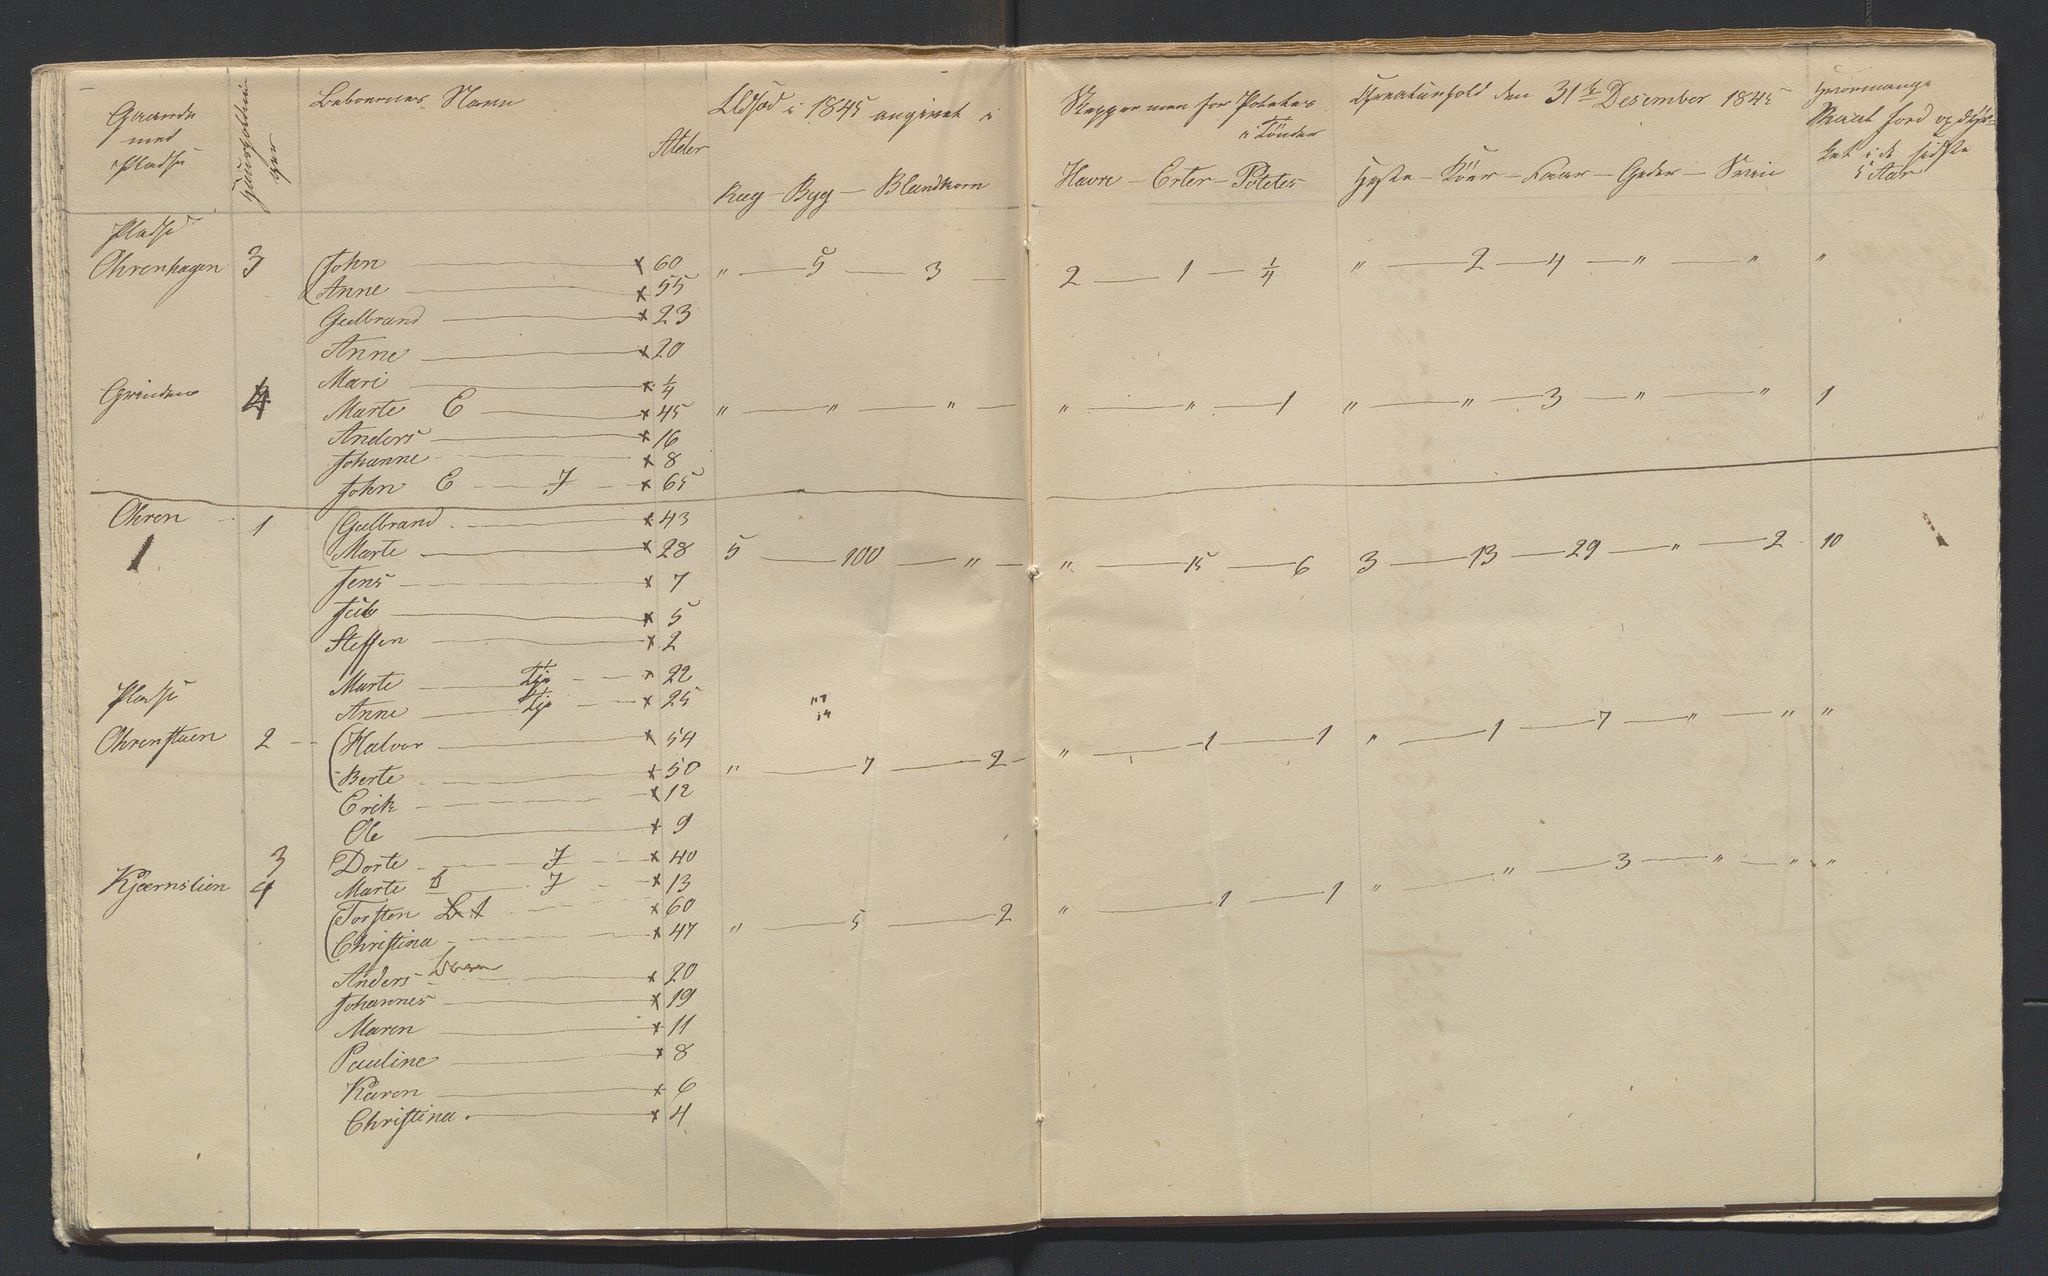 Gaarde med Pladse
Huusholdninger
Beboernes Navn
Alder
Udsæd i 1845 angivet i Skjepper men for Poteter i Tönder
Rug - Byg - Blandkorn
Havre - Erter - Poteter
Kreaturhold den 31te Desember 1845
Heste - Köer - Faar - Geder - Sviin
Hvormange Maal Jord opdyrket i de sidste 5 Aar
Pladse
Ohrenhagen 3 John x 60 " 5 3 2 1 1/4 " 2 4 " " "
Anne x 55
Gulbrand x 23
Anne x 20
Mari x 1/4
Grinden 4 Marte E x 45 " " " " " 1 " " 3 " " 1
Anders x 16
Johanne x 8
John E J x 65
Ohren 1 Gulbrand x 43
1 Marte x 28 5 100 " " 15 6 3 13 29 " 2 10
Jens x 7
Juli x 5
Steffen x 2
Marte Tje x 22
Pladse Anne Tje x 25
Ohrenstuen 2 Halvor x 54
Berte x 50 " 7 2 " 1 1 " 1 7 " " "
Erik x 12
Ole x 9
3 Dorte J x 40
Kjærnslien 4 Marte J x 13
Torsten x 60
Christina x 47 " 5 2 " 1 1 " " 3 " " "
Anders x 20
Johannes x 19
Maren x 11
Pauline x 8
Karen x 6
Christina x 4